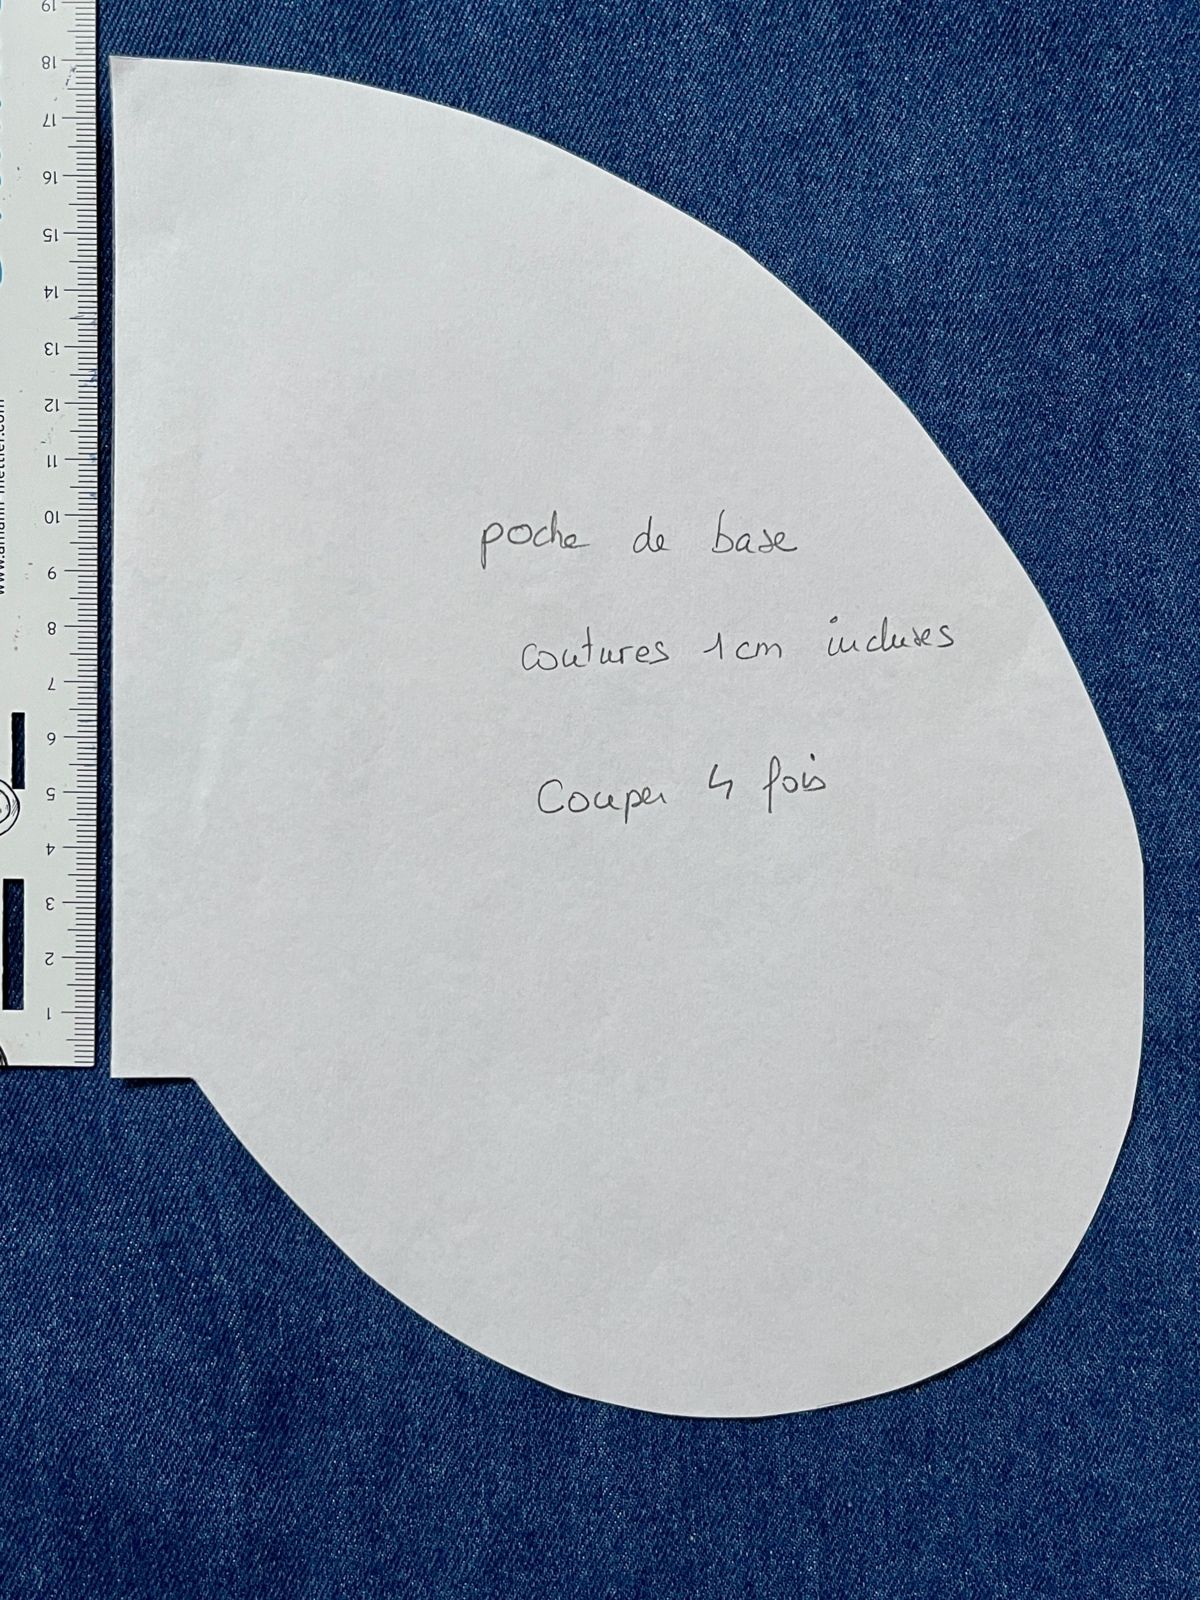 19
18
17
16
15
14
13
12
11
10
9
8
7
6
5
4
3
2
1
poche de base
coutures 1cm incluses
Couper 4 fois